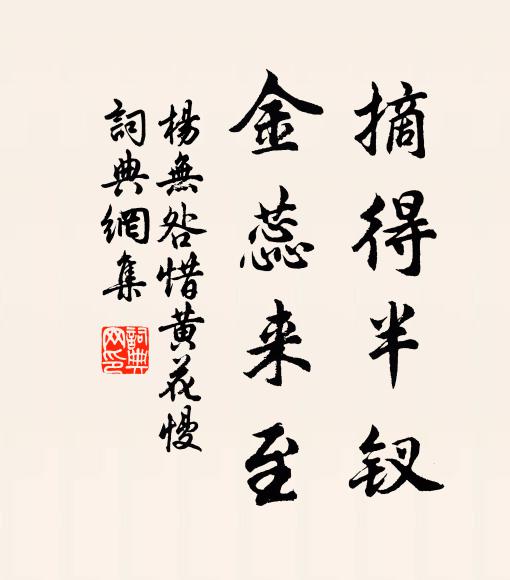 摘得半钗
金蕊来至
楊無咎惜黄花慢
詞典網集
詞典
网印